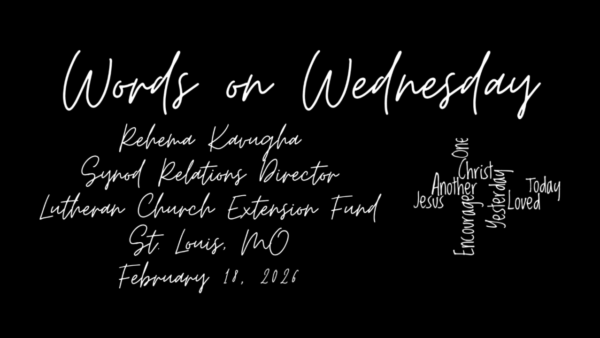 Words on Wednesday
Rehema Kavugha
Synod Relations Director
Lutheran Church Extension Fund
St. Louis, MO
February 18, 2026
One
Christ
Another
Jesus
Encourage
Yesterday
Loved
Today